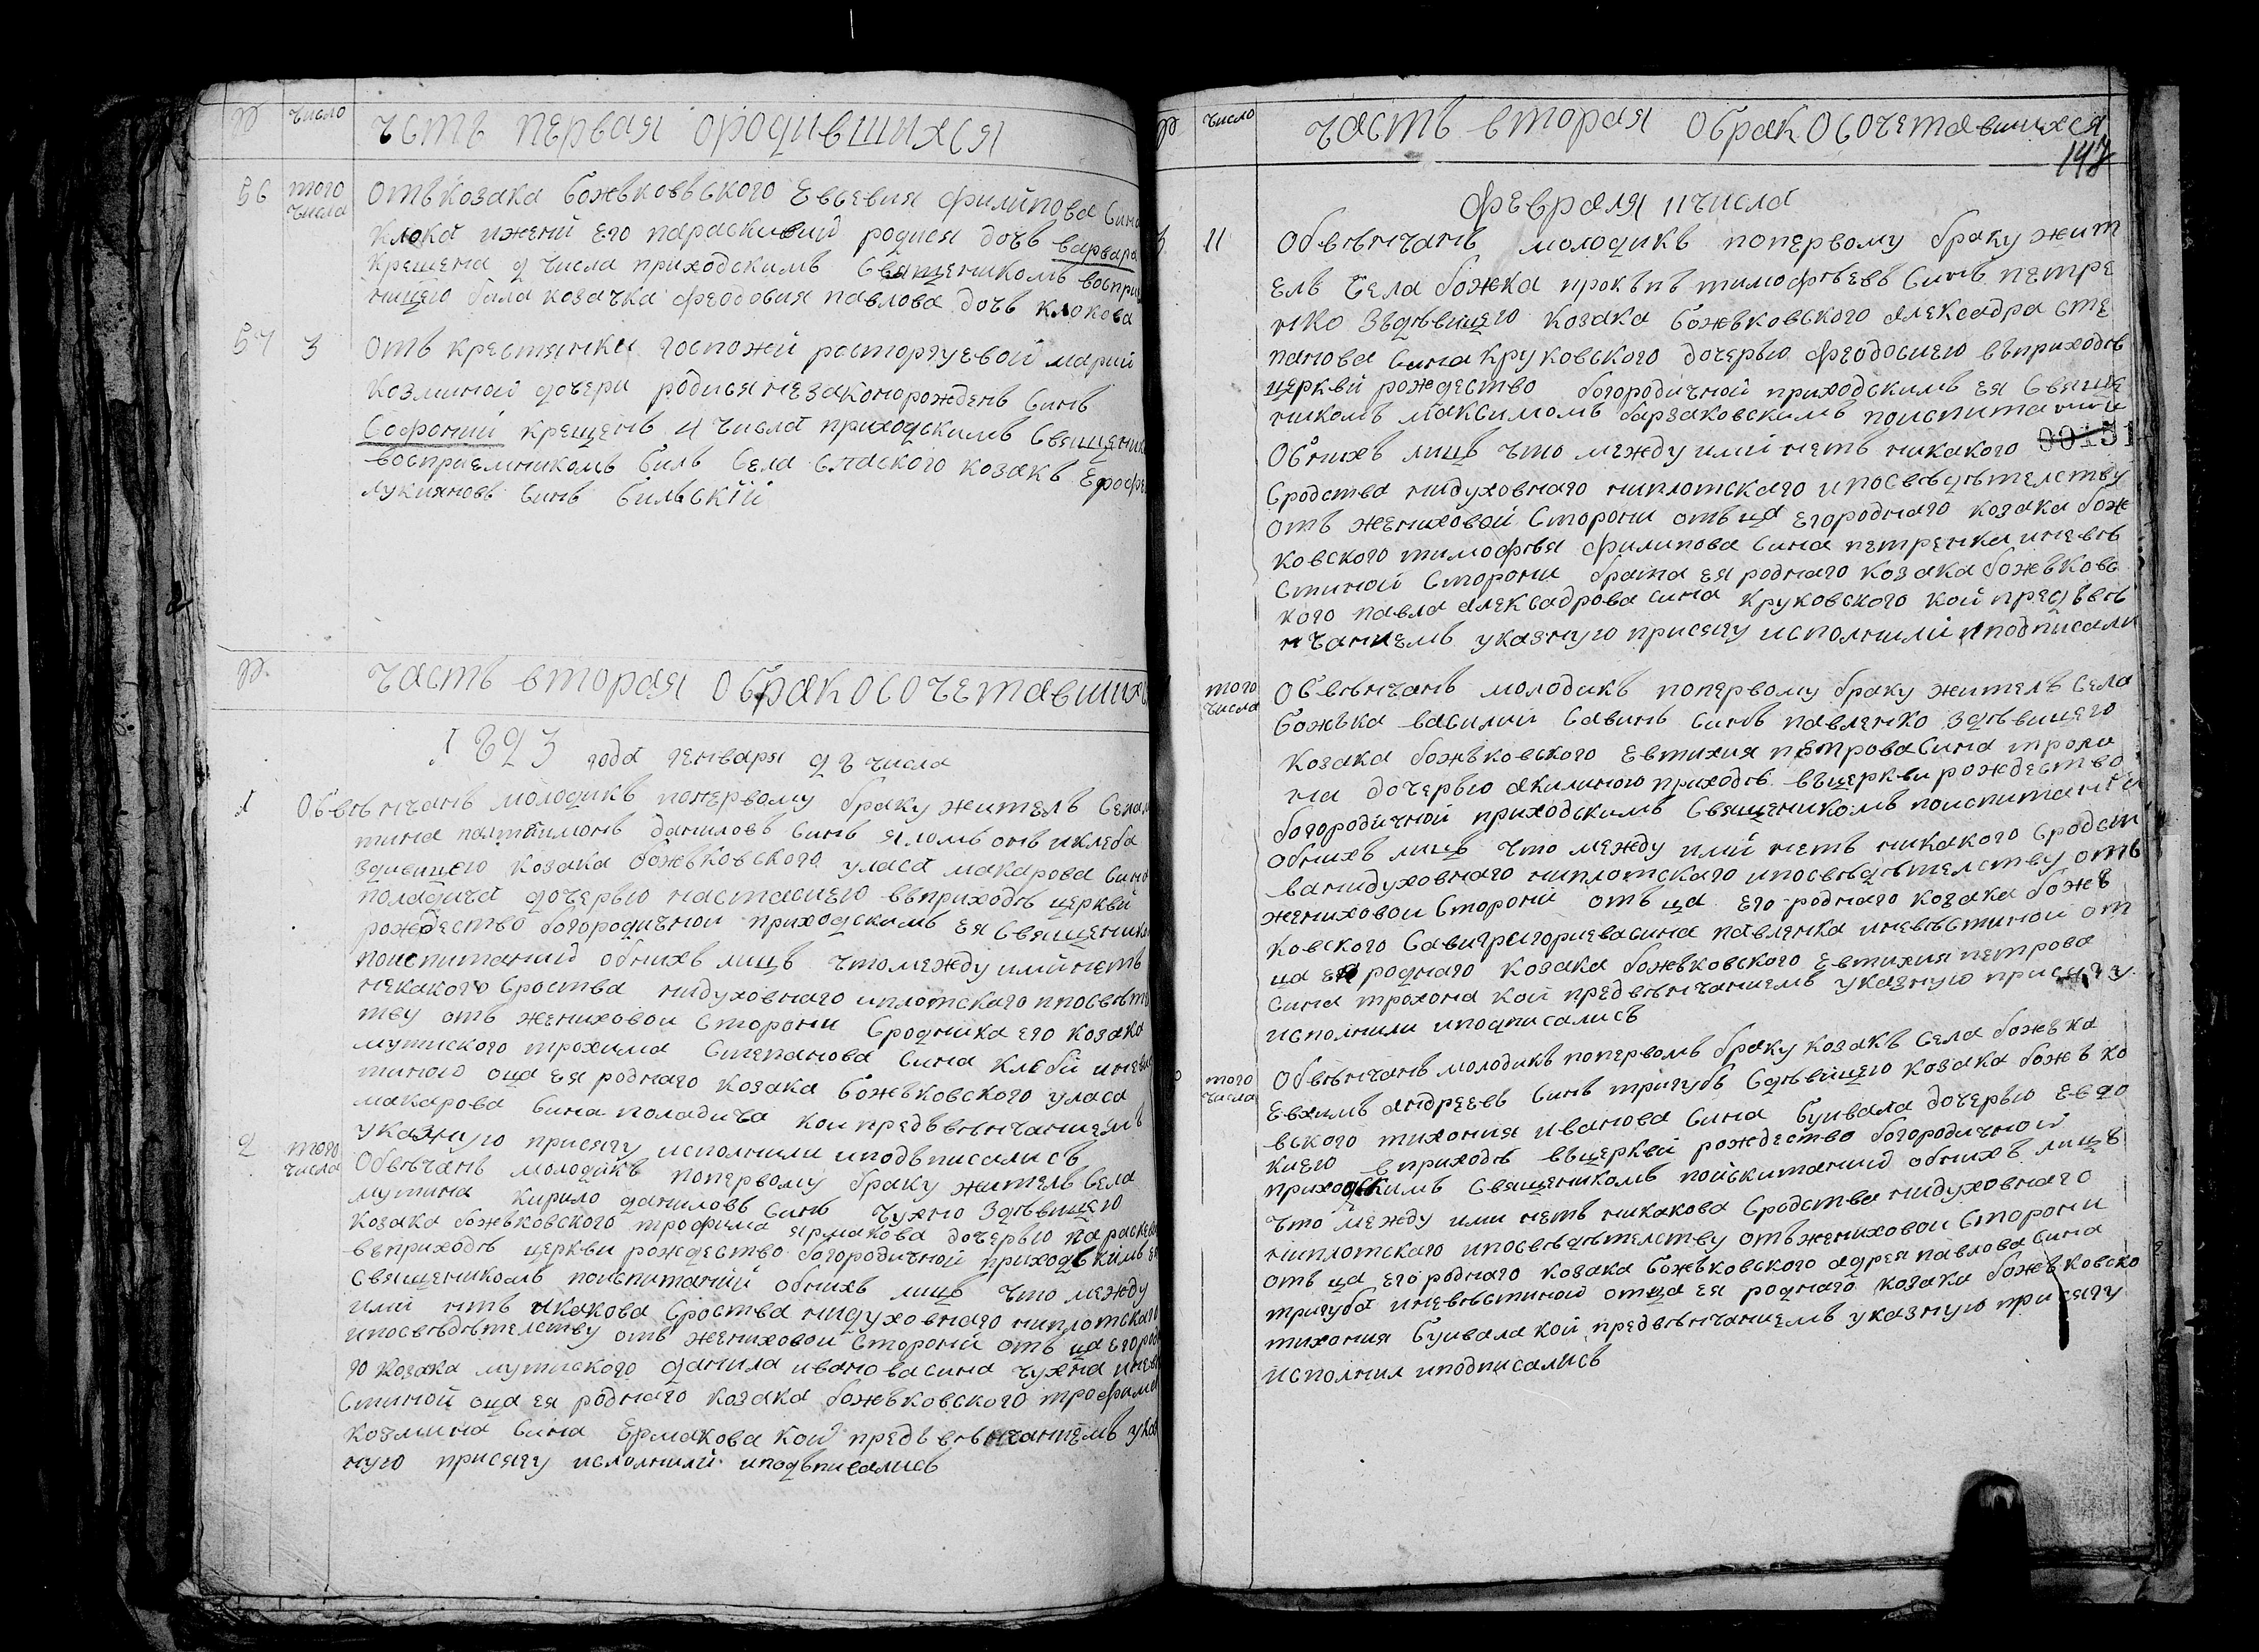 № число честь первая ородившихся
56 того числа отъ козака божъковъского Евсевия филипова сина
клока ижени его параскивий родися дочъ варвара
крещена 9 числа приходскимъ Священикомъ воспри
ницею била козачка феодосия павлова дочъ клокова
57 3 отъ крестянки госпожи расторгуевой марий
козминой дочери родися незаконорожденъ Синъ
Софроний крещенъ 4 числа приходскимъ Священик
восприемникомъ билъ Села спаского козакъ Ерофе
лукияновъ Синъ билъский
№ часть вторая обракосочетавшихс
1893 года генваря 98 числа
1 Обвѣнчанъ молодикъ попервому браку жителъ Села м
тина пантилимонъ даниловъ Синъ
здившею козака божъковского уласа макарова Сина
поладича дочерью настасиею въприходѣ церкви
рождество богородичной приходскимъ ея Священико
поиспитаний обнихъ лицъ чтомежду ими нетъ
некакого Сроства нидуховнаго иплотского ипосвѣт
тву отъ жениховои Сторони Сродника его козака
мутиского трохима Степанова Сина клеби иневи
тиною оца ея роднаго козака божъковского уласа
макарова Сина поладича кои предъвѣнчаниемъ
указную присягу исполнили иподъписалисъ
2 того числа Обвѣчанъ молодикъ попервому браку жителъ Села
мутина кирило даниловъ Синъ чухно здѣвшею
козака божъковского трофима ярмакова дочерью параске
въприходѣ церкви рождество богородичной приходъкимъ ея
Священикомъ поиспитаний обнихъ лицъ что между
ими нтъ какова Сроства нидуховнаго ниплотскаг
ипосвѣдѣтелству отъ жениховои Стороний отъ ца егородн
го козака мутиского данила иванова сина чухна иневѣ
Стиной оца ея роднаго козака божъковского трофима
козмина Сина Ермакова кои предъ вѣнчанием ука
ную присягу исполнили иподъписалисъ
№ число часть вторая обракосочетавшихся
147
февраля 11 числа
3 11 Обвѣнчанъ молодикъ попервому браку жит
елъ Села божка прокъпъ тимофѣевъ Синъ петре
нко здѣвшею козака божъковского Алексадра сте
панова Сина круковского дочерью феодосиею въприходѣ
церкви рождество богородичной приходскимъ ея Свяще
никомъ максимомъ барзаковскимъ поиспитании
Обнихъ лицъ что между ими нетъ никакого 00151
Сродства нидуховнаго ниплотскаго ипосвѣдѣтелству
отъ жениховой Сторони отъца егороднаго козака бож
ковского тимофѣя филипова Сина петренка иневѣ
Стиной Сторони брата ея роднаго козака божъковс
кого павла Алексадрова сина круковского кои предъвѣ
нчаниемъ указную присягу исполнили иподписали
того числа Обвѣнчанъ молодикъ попервому браку жителъ Села
божъка василий Савинъ Синъ павленко здѣвшею
козака божъковского Евтихия петрова Сина трохо
на дочерью Акилиною приходѣ въцеркви рождество
богородичной приходскимъ Священикомъ поиспитани
обнихъ лицъ что между ими нетъ никакого Сродст
ва нидуховнаго ниплотскаго ипосвѣдѣтелству отъ
жениховои Стороний отъ ца его роднаго козака божъ
ковского Сави григориева сина павленка иневѣстиной от
ца ея роднаго козака божъковского Евтихия петрова
Сина трохона кои предвѣнчаниемъ указную присягу
исполнили иподписалисъ
того числа Обвѣнчанъ молодикъ попервомъ браку козакъ Села божъка
Евхимъ Андреевъ Синъ тригубъ Сдѣвшею козака божъко
вского тихония иванова Сина буивала дочерью Евдо
киею вприходѣ въцеркви рождество богородичной
приходскимъ Священикомъ поискитаний обнихъ лицъ
что между ими нетъ никакова Сродства нидуховнаго
ниплотскаго ипосвѣдѣтелству отъжениховои Сторони
отъ ца его роднаго козака божъковского Адрея павлова Сина
тригуба иневѣстиной отца ея роднаго козака божъковско
тихония буивала кои предвѣнчаниемъ указную присягу
исполнил иподписалисъ